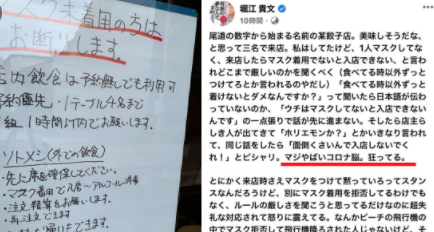 マスク未着用の方は
お断りします。
店内飲食は予約無しでも利用可
予約優先・1テーブル4名まで
1組1時間以内でお願いします。
ソトメシ(外での飲食)
・先に席を確保してください。
・注文
堀江 貴文
10時間
尾道の数字から始まる名前の某餃子店。美味しそうだな、
と思って三名で来店。私はしてたけど、1人マスクしてな
く、来店したらマスク着用でないと入店できない、と言わ
れどこまで厳しいのかを聞くべく(食べてる時以外ずっと
つけてろとか言われるのやだし)「食べてる時以外ずっと
着けないとダメなんですか?」って聞いたら日本語が伝わ
っていないのか、「ウチはマスクしてないと入店できない
んです」の一点張りで話が先に進まない。そしたら店主ら
しき人が出てきて「ホリエモンか?」とかいきなり言われ
て、同じ話をしたら「面倒くさいんで入店しないでく
れ!」とピシャリ。マジやばいコロナ脳。狂ってる。
とにかく来店時さえマスクをつけて黙っていろってスタン
スなんだろうけど、別にマスク着用を拒否してるわけでも
なく、ルールの厳しさを聞こうと思ってるだけなのに超失
礼な対応されて怒りに震えてる。なんかピーチの飛行機の
中でマスク拒否して飛行機降ろされた人じゃないけど、そ